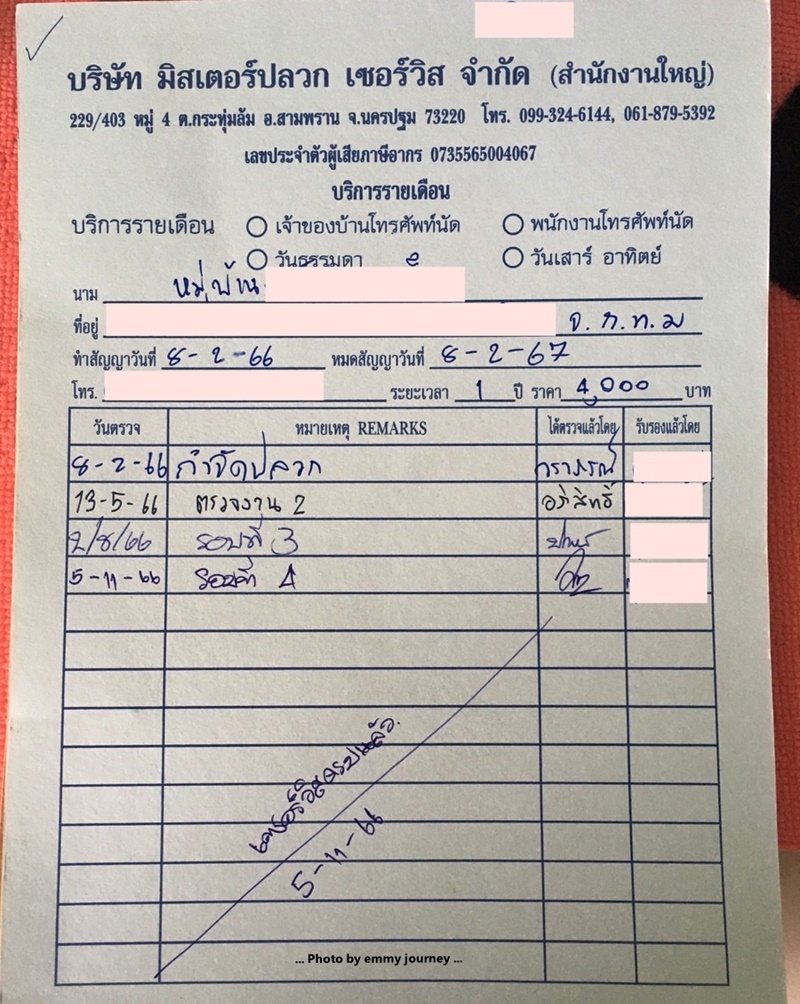 บริษัท มิสเตอร์ปลวก เซอร์วิส จำกัด (สำนักงานใหญ่)
229/403 หมู่ 4 ต.กระทุ่มล้ม อ.สามพราน จ.นครปฐม 73220 โทร. 099-324-6144, 061-879-5392
เลขประจำตัวผู้เสียภาษีอากร 0735565004067
บริการรายเดือน
บริการรายเดือน เจ้าของบ้านโทรศัพท์นัด พนักงานโทรศัพท์นัด
วันธรรมดา วันเสาร์ อาทิตย์
นาม หมู่บ้าน
ที่อยู่ จ. ก.ท.ม
ทำสัญญาวันที่ 8-2-66 หมดสัญญาวันที่ 8-2-67
โทร. ระยะเวลา 1 ปี ราคา 4,000 บาท
วันตรวจ หมายเหตุ REMARKS ได้ตรวจแล้วโดย รับรองแล้วโดย
8-2-66 กำจัดปลวก
13-5-66 ตรวจงาน 2 อภิสิทธิ์
2/8/66 รอบที่ 3
5-11-66 รอบที่ 4
เซอร์วิสครบแล้ว.
5-11-66
... Photo by emmy journey ...